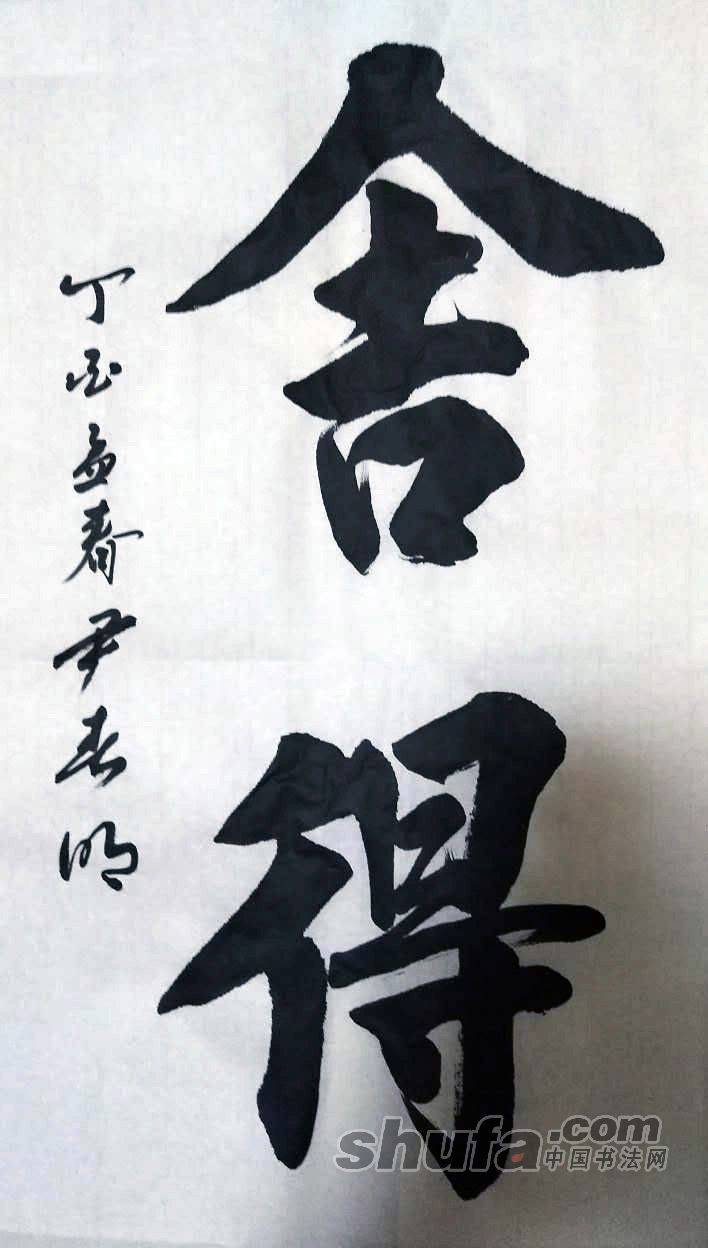 舍得
丁酉孟春尹春明
shufa.com
中国书法网